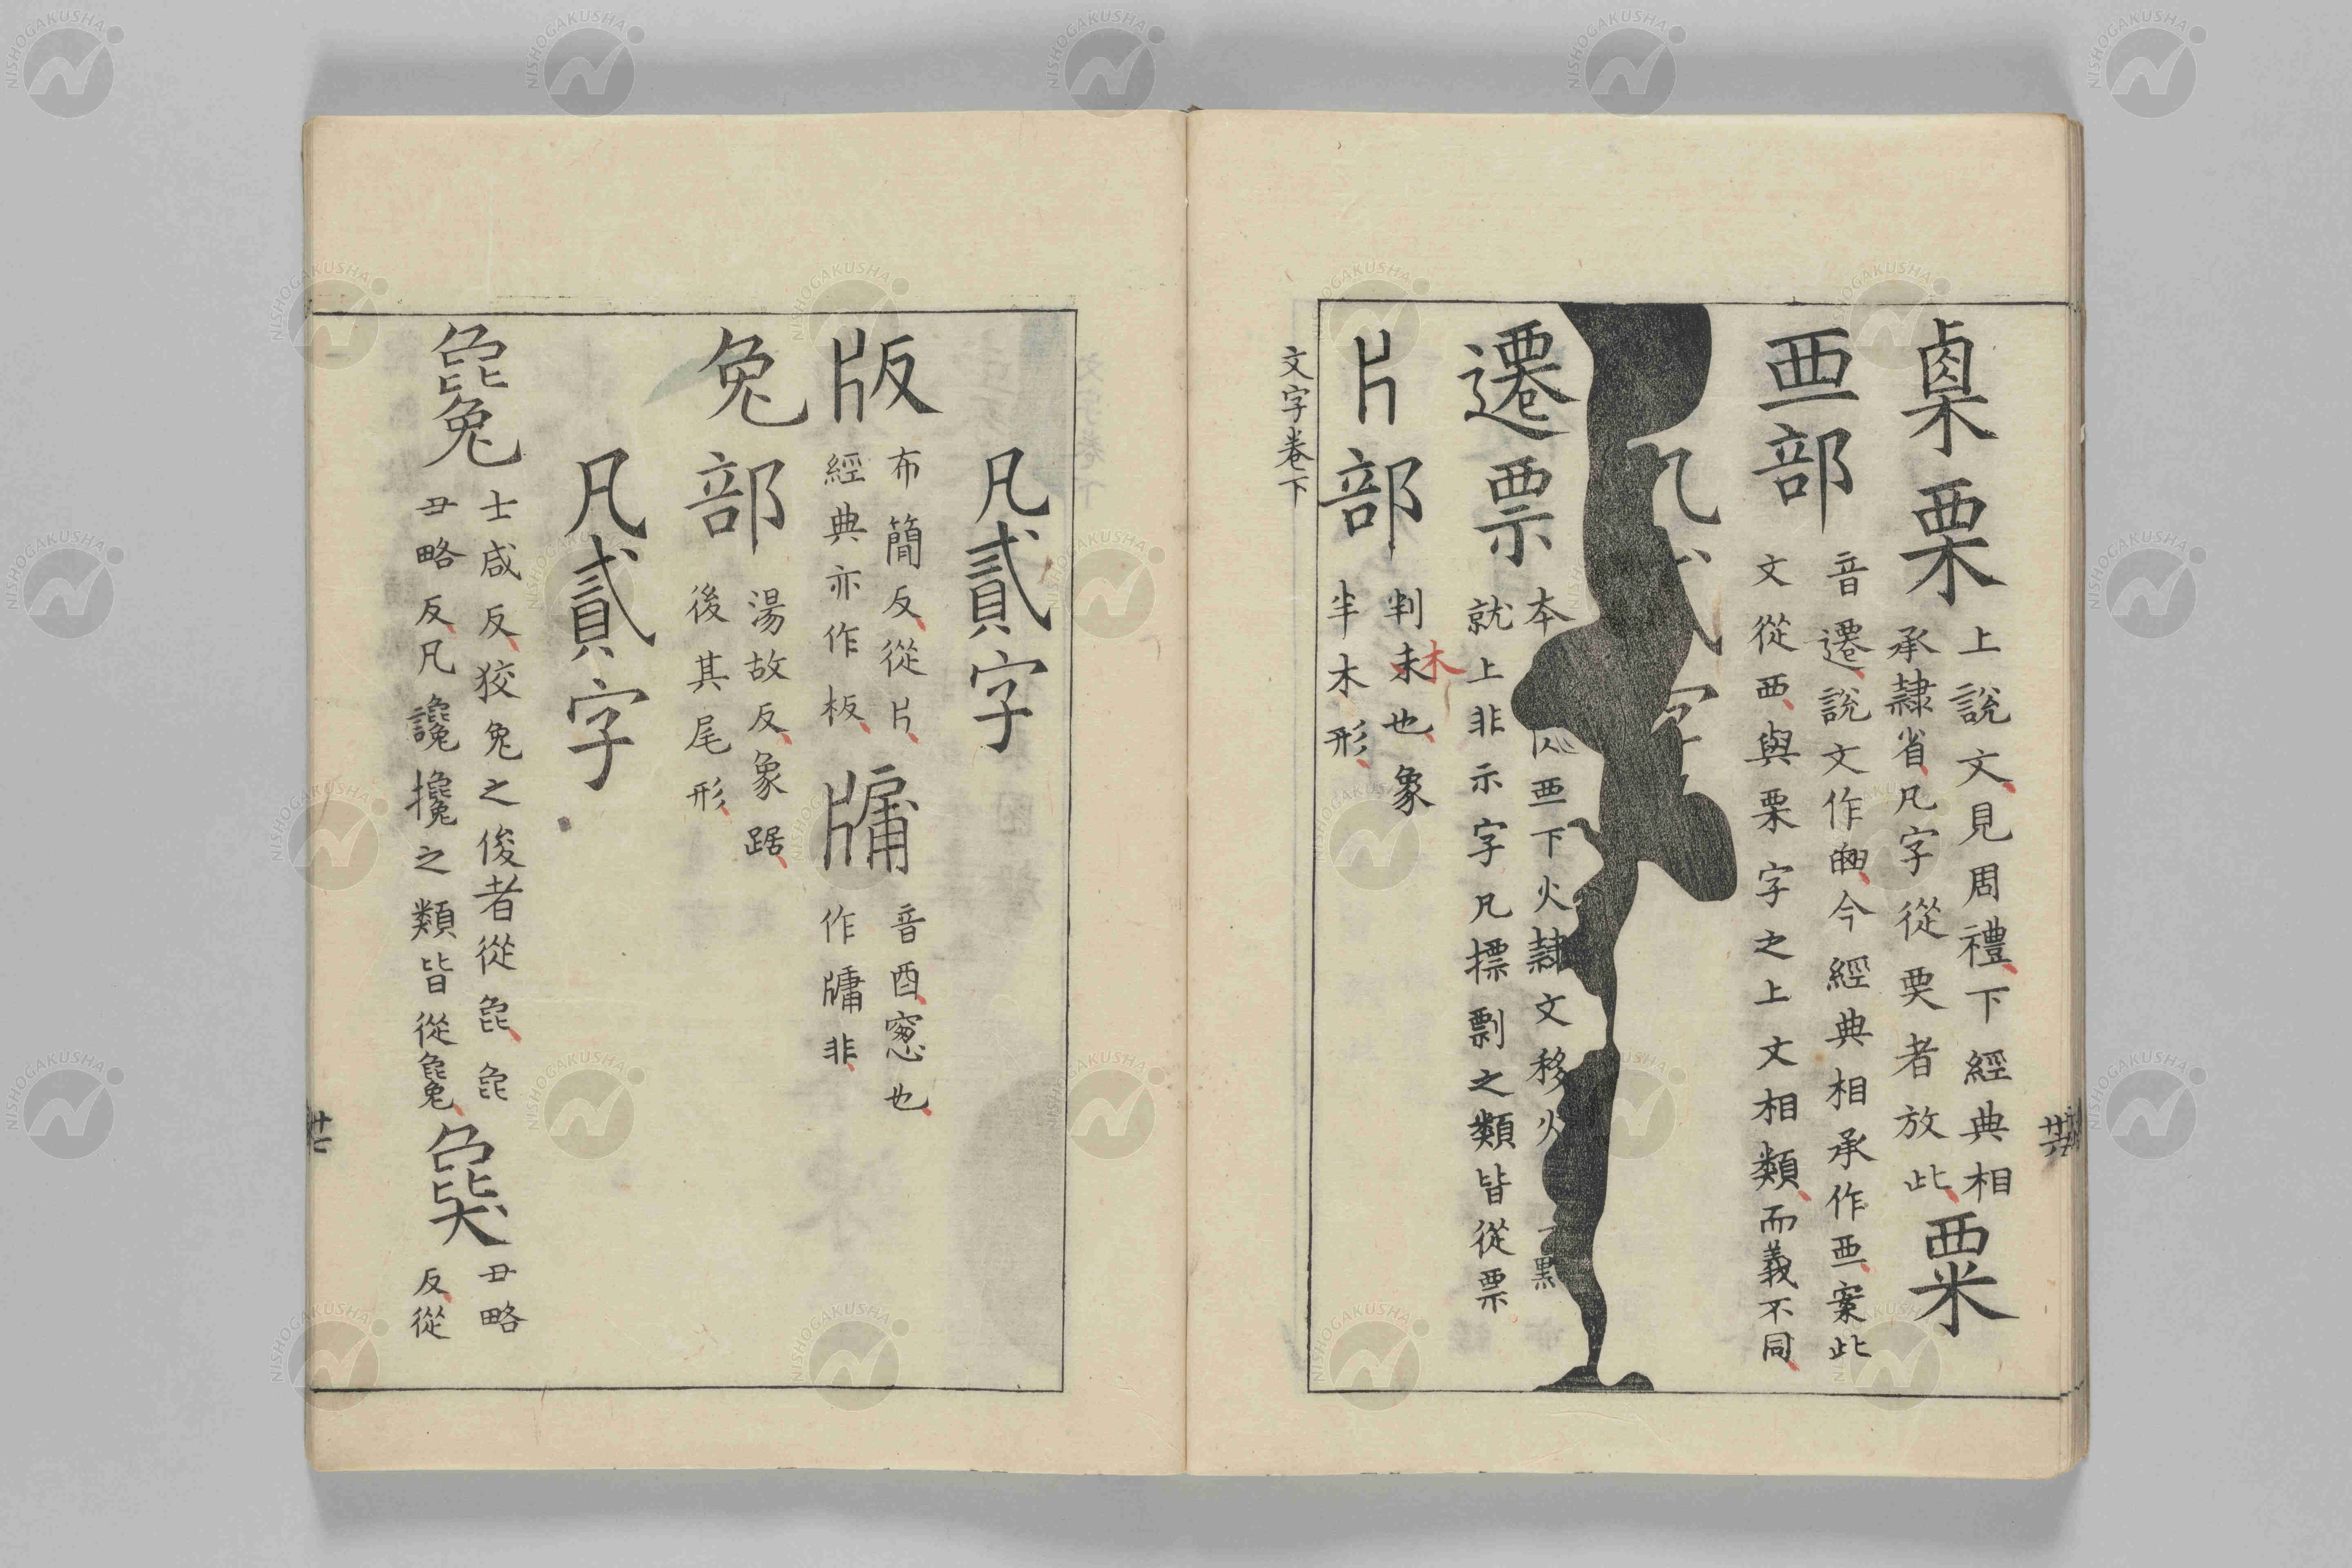 㮚 栗 上說文見周禮下經典相
承隸省凡字從㮚者放此 粟
覀部 音遷說文作䙴今經典相承作覀案此
文從西與栗字之上文相類而義不同
凡貳字
遷 票 本 覀下火隸文移火
就上非示字凡摽剽之類皆從票
片部 判木也象
半木形
文字卷下
廿六
凡貳字
版 布簡反從片
經典亦作板
牖 音酉窓也
作牗非
兔部 湯故反象踞
後其尾形
凡貳字
毚 士咸反狡兔之俊者從㲋㲋
丑略反凡讒攙之類皆從毚
㲋 丑略
反從
廿七
NISHOGAKUSHA